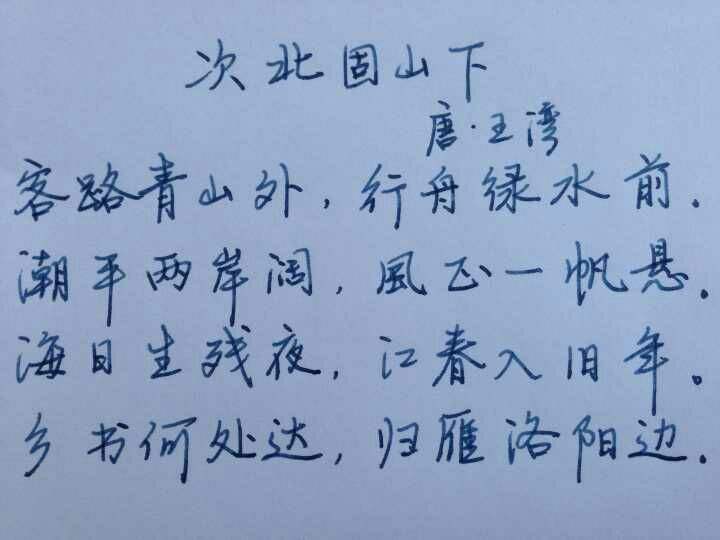 次北固山下
唐·王湾
客路青山外,行舟绿水前.
潮平两岸阔,風正一帆悬.
海日生残夜,江春入旧年。
乡书何处达,归雁洛阳边.